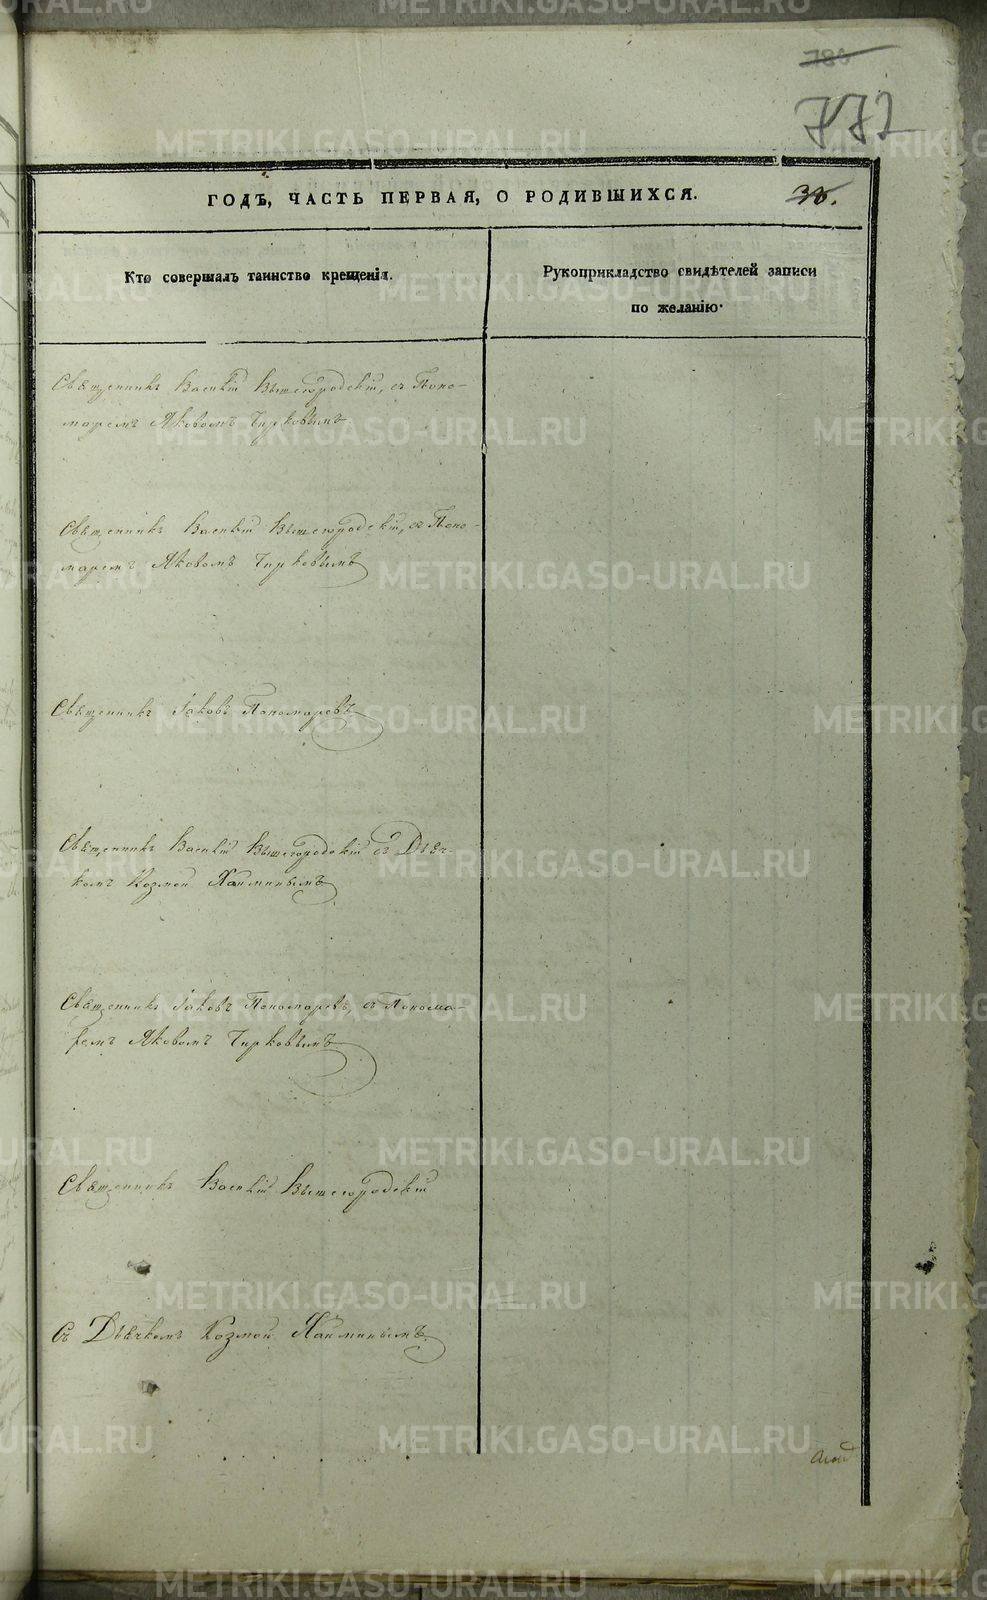 780
772
ГОДЪ, ЧАСТЬ ПЕРВАЯ, О РОДИВШИХСЯ.
Кто совершалъ таинство крещенія.
Рукоприкладство свидѣтелей записи
по желанію.
Священникъ Василій Вышегородскій, съ Поно-
маремъ Яковомъ Чирковымъ
Священникъ Василій Вышегородскій, съ Поно-
маремъ Яковомъ Чирковымъ
Священникъ Іаковъ Пономаревъ
Священникъ Василій Вышегородскій съ Дьяч-
комъ Козмой
Священникъ Іаковъ Пономаревъ, съ Понома-
ремъ Яковомъ Чирковымъ
Священникъ Василій Вышегородскій
Съ Дьячкомъ Козмой
METRIKI.GASO-URAL.RU